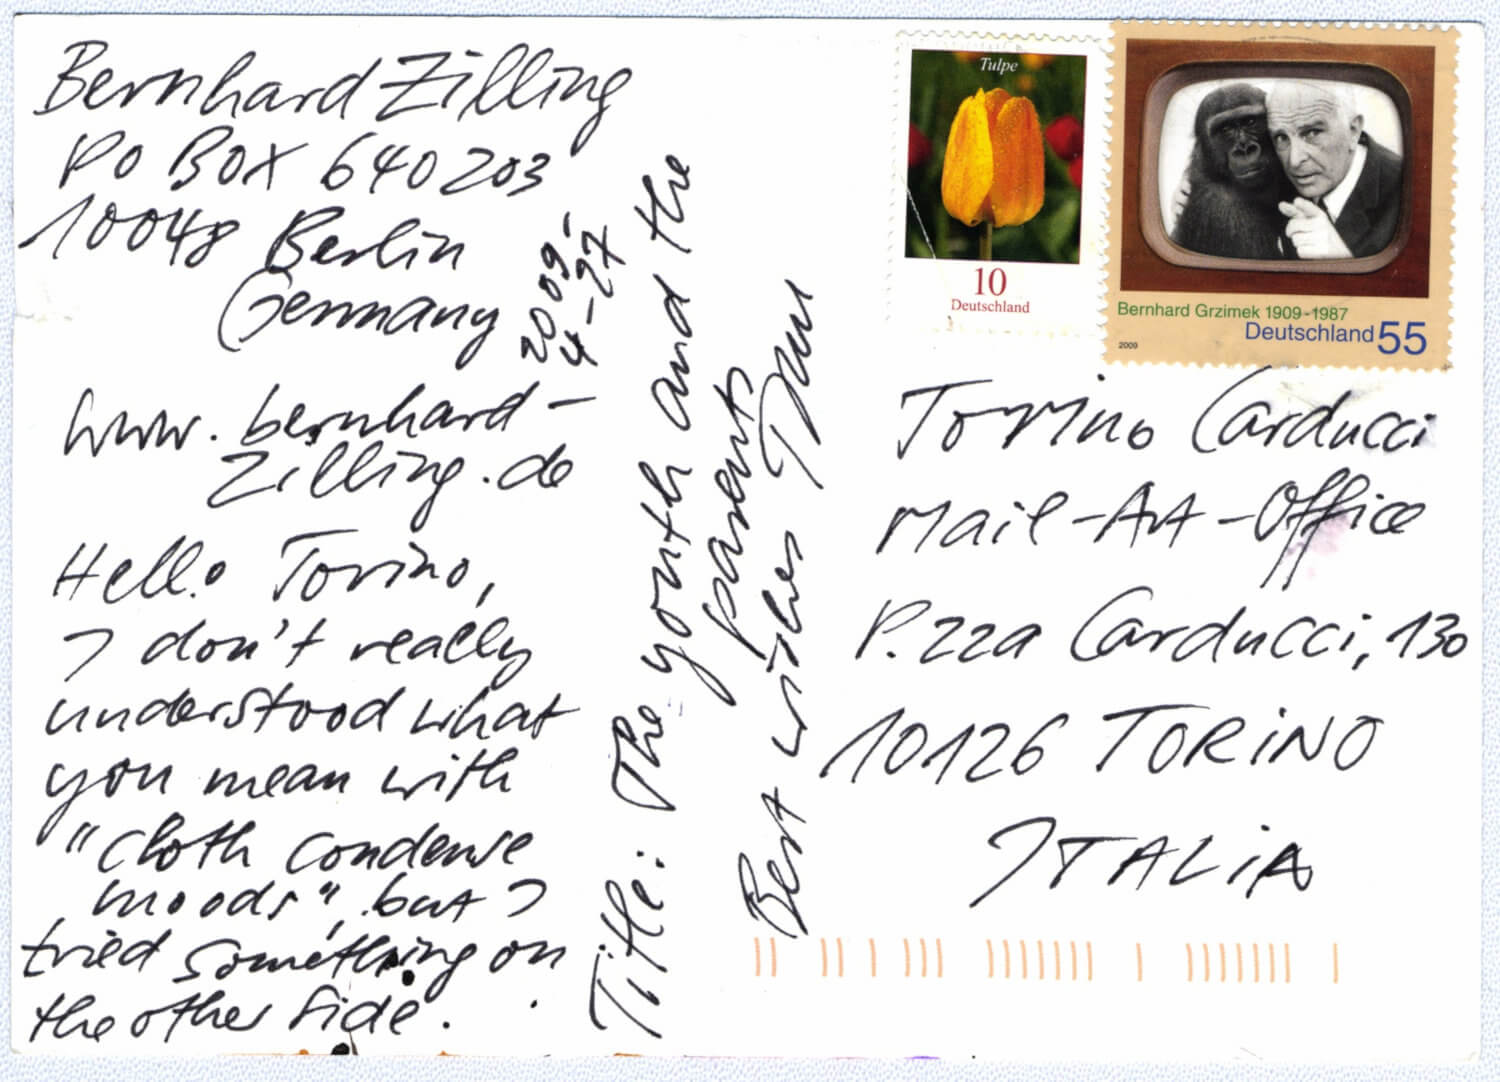 Bernhard Zilling
PO BOX 640203
10048 Berlin
Germany
2009-
4-27
www.bernhard-
zilling.de
Hello Torino,
I don't really
understood what
you mean with
"cloth condense
moods", but I
tried something on
the other side.
Title: The youth and the
parents
Best wishes
Tulpe
10
Deutschland
Bernhard Grzimek 1909-1987
Deutschland 55
2009
Torino Carducci
Mail-Art-Office
P.zza Carducci, 130
10126 TORiNO
ITALiA